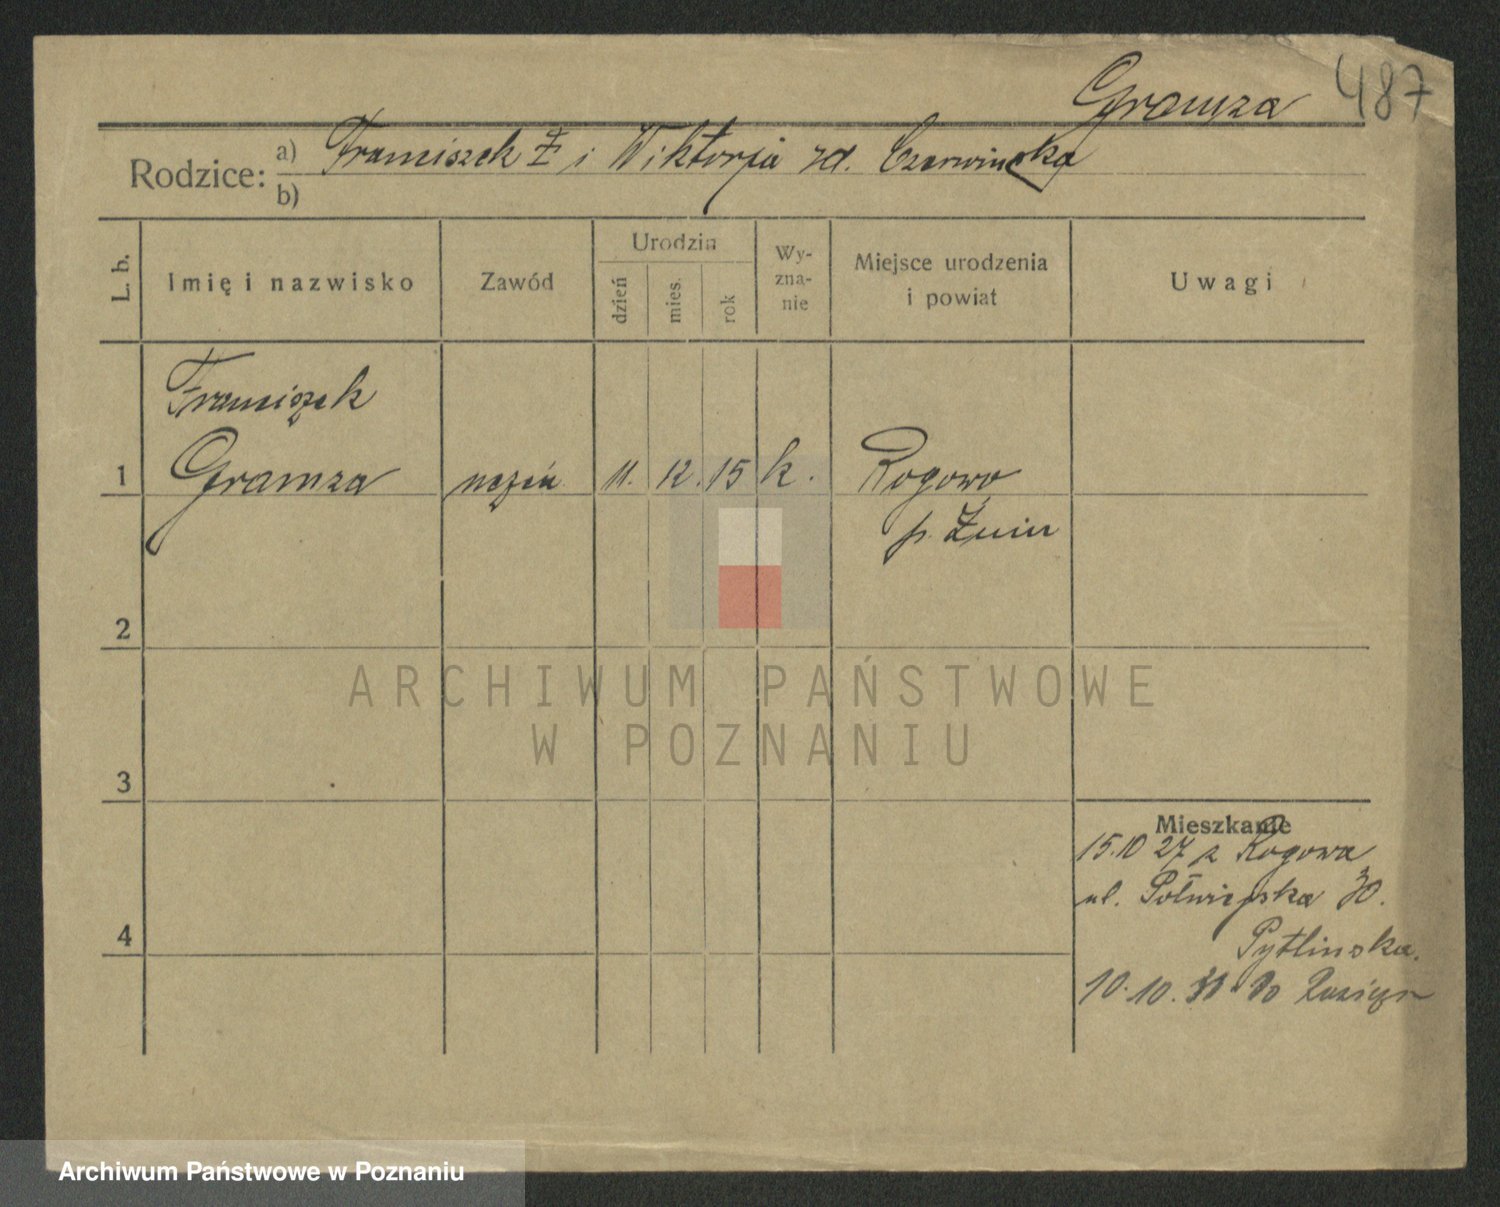 Gramza 487
Rodzice: a) Franciszek Ż i Wiktorja zd. Czerwinska
b)
L. b. Imię i nazwisko Zawód Urodzin dzień mies. rok Wy-zna-nie Miejsce urodzenia i powiat Uwagi
Franciszek
1 Gramza uczeń 11. 12. 15 k. Rogowo
p. Żnin
2
ARCHIWUM PAŃSTWOWE
W POZNANIU
3
Mieszkanie
15.10 27 z Rogowa
ul. Półwiejska 30.
4
Pytlinska.
10. 10. 30 do
Archiwum Państwowe w Poznaniu